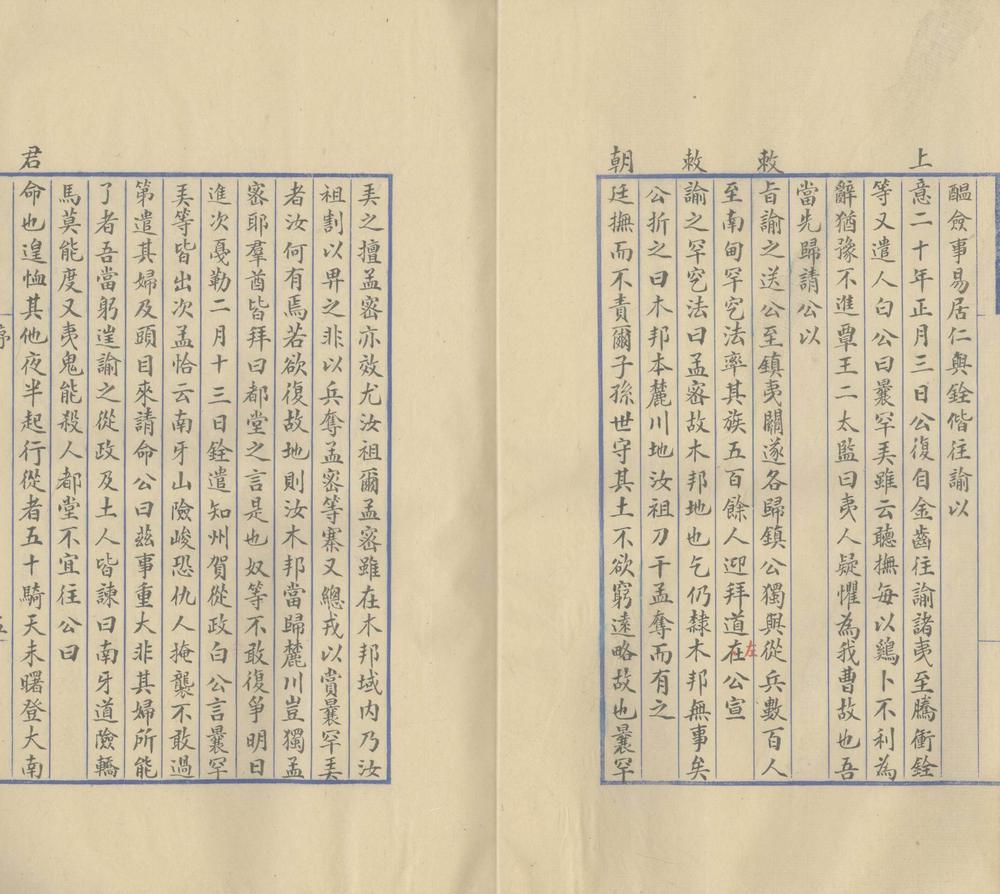 醞僉事易居仁與銓偕往諭以
上意二十年正月三日公復自金齒往諭諸夷至騰衝銓
等又遣人白公曰曩罕弄雖云聽撫每以鷄卜不利為
辭猶豫不進覃王二太監曰夷人疑懼為我曹故也吾
當先歸請公以
敕旨諭之送公至鎮夷關遂各歸鎮公獨與從兵數百人
至南甸罕穵法率其族五百餘人迎拜道在左公宣
敕諭之罕穵法曰孟密故木邦地也乞仍隸木邦無事矣
公折之曰木邦本麓川地汝祖刀干孟奪而有之
朝廷撫而不責爾子孫世守其土不欲窮遠略故也曩罕
弄之擅孟密亦效尤汝祖爾孟密雖在木邦域内乃汝
祖割以畀之非以兵奪孟密等寨又總戎以賞曩罕弄
者汝何有焉若欲復故地則汝木邦當歸麓川豈獨孟
密耶羣酋皆拜曰都堂之言是也奴等不敢復爭明日
進次戞勒二月十三日銓遣知州賀從政白公言曩罕
弄等皆出次孟恰云南牙山險峻恐仇人掩襲不敢過
第遣其婦及頭目來請命公曰茲事重大非其婦所能
了者吾當躬往諭之從政及土人皆諫曰南牙道險轎
馬莫能度又夷鬼能殺人都堂不宜往公曰
君命也遑恤其他夜半起行從者五十騎天未曙登大南
序
五